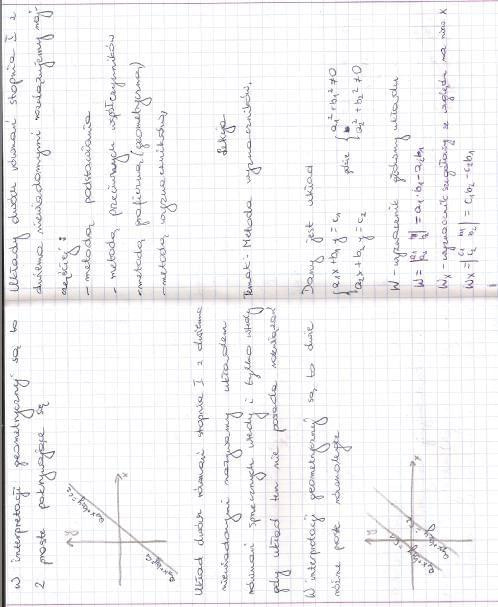 W interpretacji geometrycznej są to
2 proste pokrywające się
y
x
a₁x+b₁y=c₁
a₂x+b₂y=c₂
Układ dwóch równań stopnia I z dwiema
niewiadomymi nazywamy układem
równań sprzecznych wtedy i tylko wtedy
gdy układ ten nie posiada rozwiązań
W interpretacji geometrycznej są to dwie
różne proste równoległe
y
x
Układy dwóch równań stopnia I z
dwiema niewiadomymi rozwiązujemy naj-
częściej:
- metodą podstawiania
- metodą przeciwnych współczynników
- metodą graficzną (geometryczną)
- metodą wyznaczników
Lekcja
Temat: Metoda wyznaczników.
Dany jest układ
{ a₁x + b₁y = c₁
a₂x + b₂y = c₂
gdzie { a₁² + b₁² ≠ 0
a₂² + b₂² ≠ 0
W - wyznacznik główny układu
W = |a₁ b₁ a₂ b₂| = a₁·b₂ - a₂b₁
Wx - wyznacznik ze względu na niew. x
Wx = |c₁ b₁ c₂ b₂| = c₁b₂ - c₂b₁